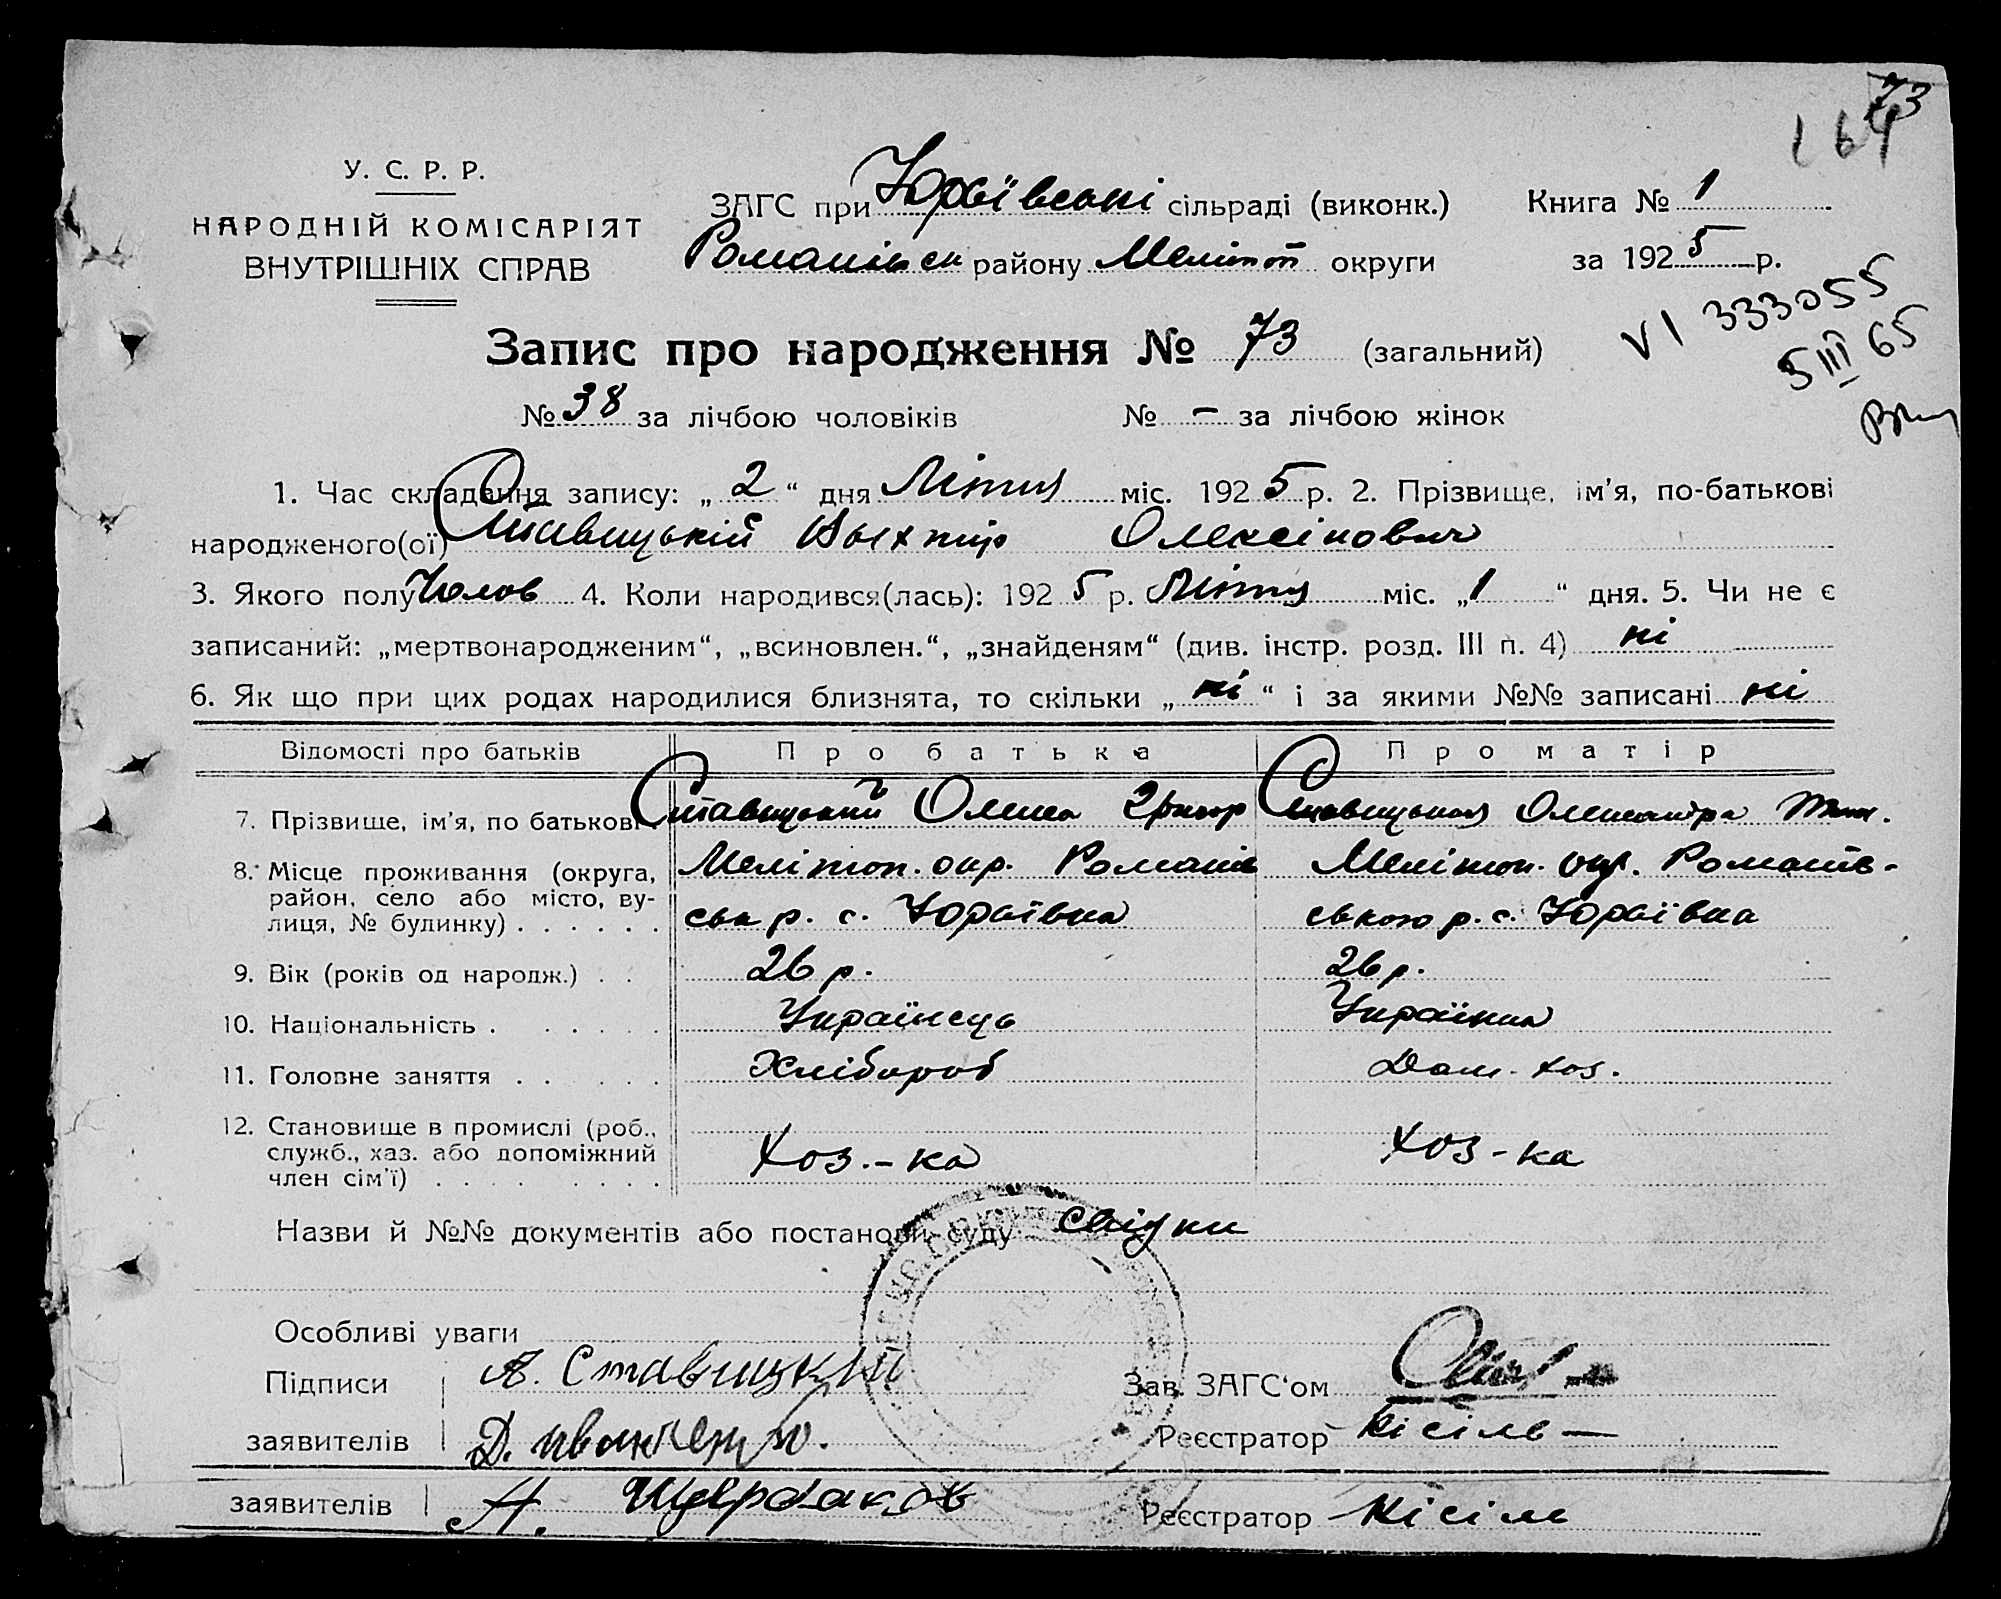 73
164
У. С. Р. Р.
НАРОДНІЙ КОМІСАРІЯТ
ВНУТРІШНІХ СПРАВ
ЗАГС при Юраївські сільраді (виконк.)
Романівськ району Меліт округи
Книга № 1
за 1925 р.
VI 333055
5 III 65
Запис про народження № 73 (загальний)
№ 38 за лічбою чоловіків № – за лічбою жінок
1. Час складання запису: „2“ дня Літня міс. 1925 р. 2. Прізвище, ім’я, по-батькові
народженого(ої) Ставицькій Выхтір Олексійович
3. Якого полу Чолов 4. Коли народився(лась): 1925 р. Літня міс. „1“ дня. 5. Чи не є
записаний: „мертвонародженим“, „всиновлен.“, „знайденям“ (див. інстр. розд. III п. 4) ні
6. Як що при цих родах народилися близнята, то скільки „ні“ і за якими №№ записані ні
Відомості про батьків Про батька Про матір
7. Прізвище, ім’я, по батькові. Ставицький Олекса Григор Ставицькая Олександра
8. Місце проживання (округа, Мелітоп. окр. Романів Мелітоп. окр. Романів-
район, село або місто, ву- ськ р. с. Юраївка ського р. с. Юраївка
лиця, № будинку)
9. Вік (років од народж.) 26 р. 26 р.
10. Національність Українець Українка
11. Головне заняття Хлібороб Дом. хоз.
12. Становище в промислі (роб.,
служб., хаз. або допоміжний Хоз.-ка Хоз-ка
член сім’ї)
Назви й №№ документів або постанови суду свідки
Особливі уваги
Підписи А. Ставицкий Зав. ЗАГС‘ом
заявителів Д. Иваненко. Реєстратор Кісіль
заявителів А. Щербаков Реєстратор Кісіль